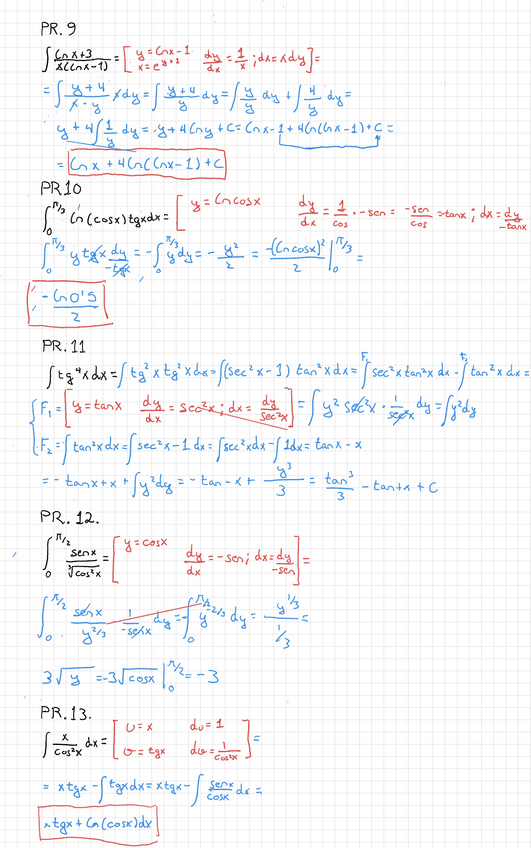 PR. 9
∫ (ln x+3)/(x(ln x-1)) = [ y = ln x - 1   dy/dx = 1/x ; dx = x dy
x = e^(y+1) ] =
= ∫ (y+4)/(x·y) x dy = ∫ (y+4)/y dy = ∫ y/y dy + ∫ 4/y dy =
y + 4∫ 1/y dy = y + 4 ln y + C = ln x - 1 + 4 ln(ln x - 1) + C =
= ln x + 4 ln(ln x - 1) + C
PR.10
∫₀^(π/3) ln(cos x) tg x dx = [ y = ln cos x   dy/dx = 1/cos · -sen = -sen/cos = -tan x ; dx = dy/-tan x
∫₀^(π/3) y tg x dy/-tg x = -∫₀^(π/3) y dy = - y²/2 = -(ln cos x)²/2 |₀^(π/3) =
- ln 0'5 / 2
PR. 11
∫ tg⁴x dx = ∫ tg²x tg²x dx = ∫ (sec²x - 1) tan²x dx = F₁ ∫ sec²x tan²x dx - F₂ ∫ tan²x dx =
F₁ = [ y = tan x   dy/dx = sec²x ; dx = dy/sec²x ] = ∫ y² sec²x · 1/sec²x dy = ∫ y² dy
F₂ = ∫ tan²x dx = ∫ sec²x - 1 dx = ∫ sec²x dx - ∫ 1 dx = tan x - x
= - tan x + x + ∫ y² dy = - tan - x + y³/3 = tan³/3 - tan + x + C
PR. 12.
∫₀^(π/2) sen x/∛(cos²x) = [ y = cos x   dy/dx = -sen ; dx = dy/-sen ] =
∫₀^(π/2) sen x/y^(2/3) 1/-sen x dy = -∫₀^(π/2) y^(-2/3) dy = y^(1/3)/(1/3) =
3√y = -3√cos x |₀^(π/2) = -3
PR. 13.
∫ x/cos²x dx = [ u = x   du = 1
v = tg x   dv = 1/cos²x ] =
= x tg x - ∫ tg x dx = x tg x - ∫ sen x/cos x dx =
x tg x + ln(cos x) dx